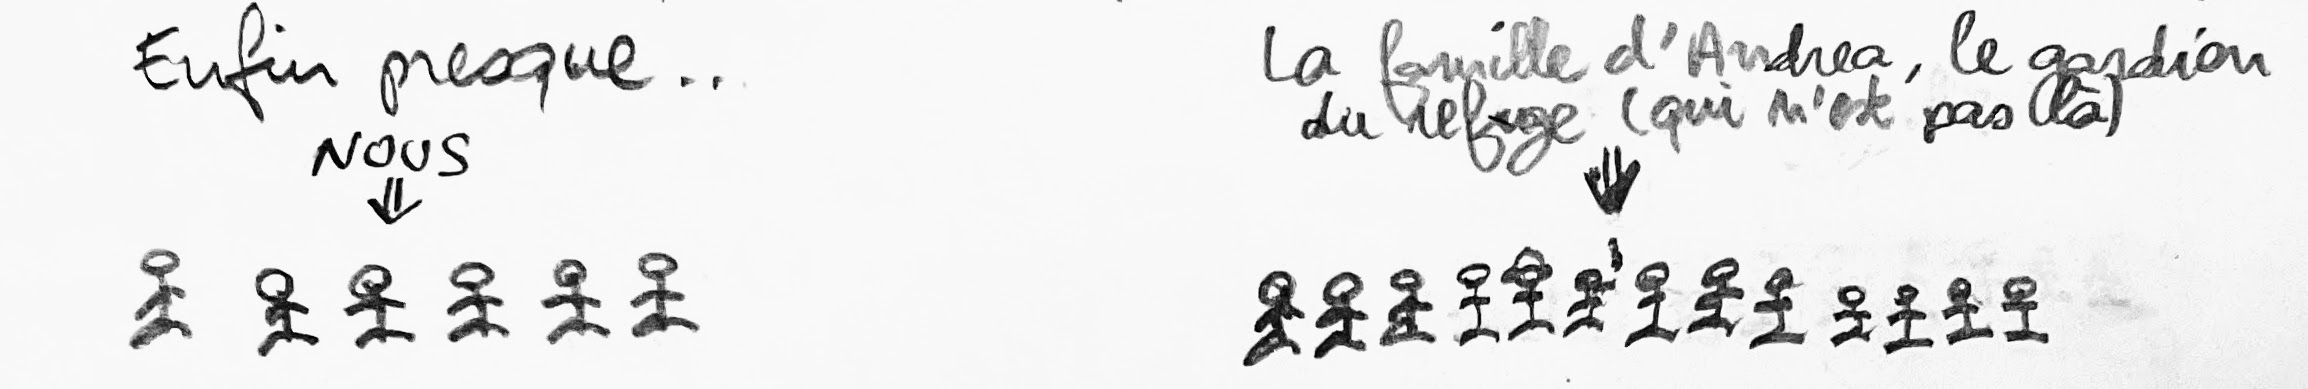 Enfin presque..
NOUS
La famille d'Andrea, le gardien
du refuge (qui n'est pas là)